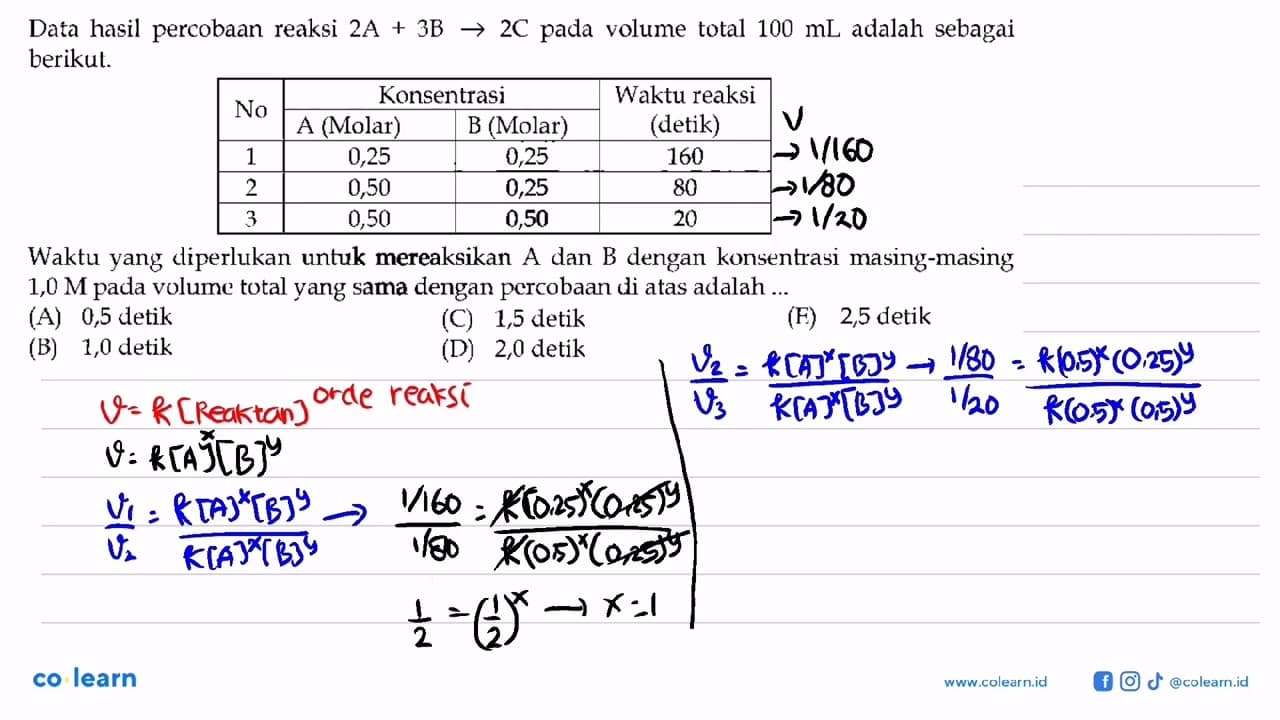 Data hasil percobaan reaksi 2A + 3B → 2C pada volume total 100 mL adalah sebagai
berikut.
No Konsentrasi Waktu reaksi (detik) V
A (Molar) B (Molar)
1 0,25 0,25 160 → 1/160
2 0,50 0,25 80 → 1/80
3 0,50 0,50 20 → 1/20
Waktu yang diperlukan untuk mereaksikan A dan B dengan konsentrasi masing-masing
1,0 M pada volume total yang sama dengan percobaan di atas adalah ...
(A) 0,5 detik (C) 1,5 detik (E) 2,5 detik
(B) 1,0 detik (D) 2,0 detik
v = k [Reaktan]^orde reaksi
v = k[A]^x [B]^y
v₁/v₂ = k[A]^x[B]^y / k[A]^x[B]^y → 1/160 / 1/80 = k(0,25)^x(0,25)^y / k(0,5)^x(0,25)^y
1/2 = (1/2)^x → x = 1
v₂/v₃ = k[A]^x[B]^y / k[A]^x[B]^y → 1/80 / 1/20 = k(0,5)^x(0,25)^y / k(0,5)^x(0,5)^y
co learn
www.colearn.id @colearn.id